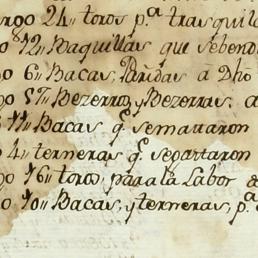 rgo 24" toros p.ª trasquilo
o 12" Baquillas que sebend
go 6" Bacas, Paridas â Dho
go 57" Bezerros, y Bezerras, a
11" Bacas q̃ semataron
o 4" terneras q̃ seapartaron
go 16" toros para la Labor d
o 10" Bacas, y terneras, p.ª